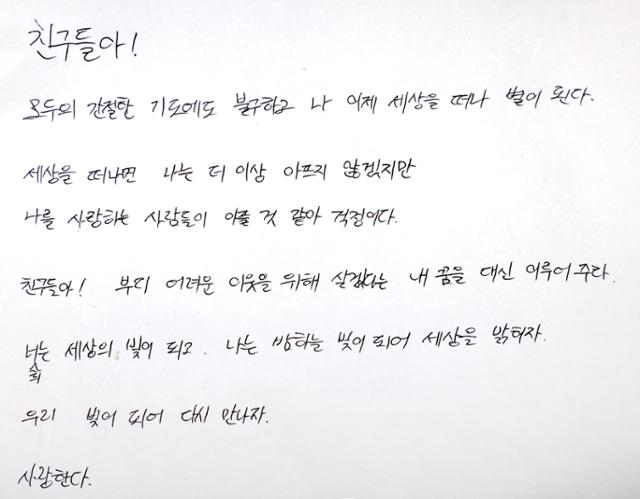 친구들아!
모두의 간절한 기도에도 불구하고 나 이제 세상을 떠나 별이 된다.
세상을 떠나면 나는 더 이상 아프지 않겠지만
나를 사랑하는 사람들이 아플 것 같아 걱정이다.
친구들아! 부디 어려운 이웃을 위해 살겠다는 내 꿈을 대신 이루어주라.
너는 세상의 빛이 되고. 나는 밤하늘 빛이 되어 세상을 밝히자.
희
우리 빛이 되어 다시 만나자.
사랑한다.